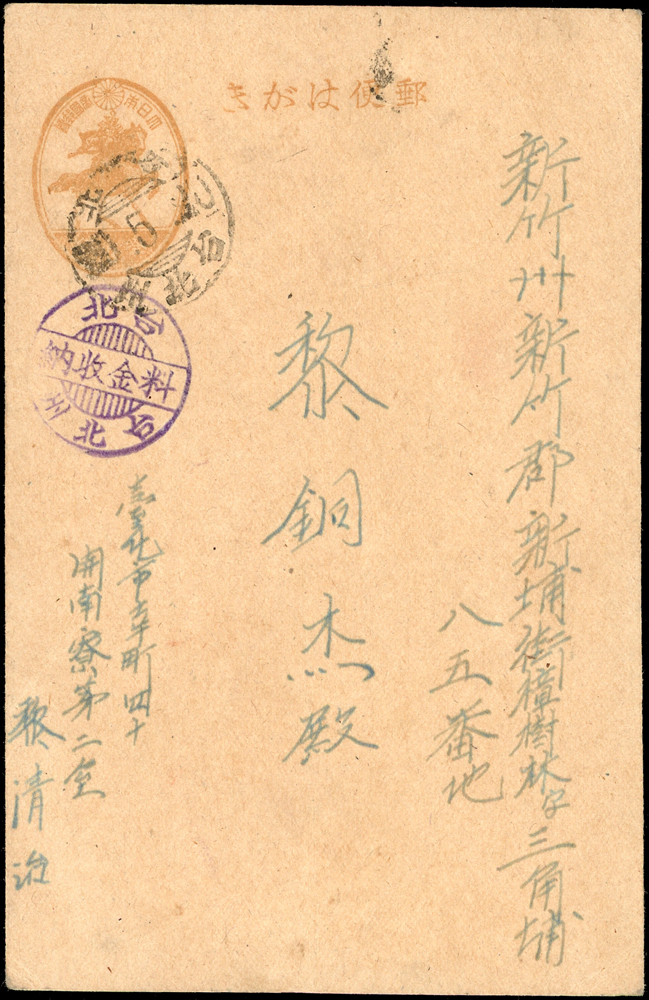 郵便はがき
新竹州新竹郡新埔街樟樹林字三角埔
八五番地
黎銅杰殿
臺北市幸町四十
開南寮第二室
黎清治
大日本帝國郵便
台北
料金收納
台北